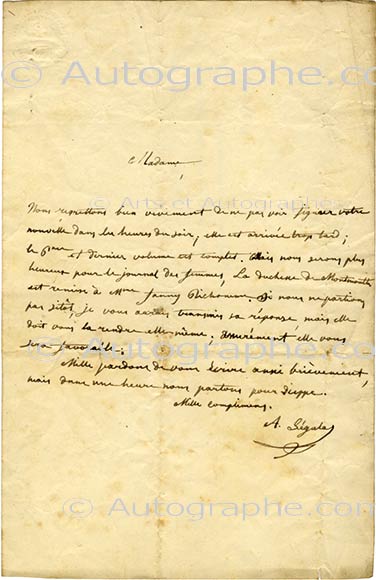 © Autographe.com
Madame,
© Arts et Autographes
Nous regrettons bien vivement de ne pas voir figurer votre
nouvelle dans les heures du soir, elle est arrivée trop tard ;
le 6eme et dernier volume est complet. Mais nous serons plus
heureux pour le journal des femmes, La duchesse de
est remise à Mme Fanny Richomme. Si nous ne partions
pas sitôt, je vous aurais transmis sa réponse, mais elle
doit vous la rendre elle-même ; assurément elle vous
sera favorable.
Mille pardons de vous écrire aussi brièvement,
mais dans une heure nous partons pour Dieppe.
Mille compliments.
A. Ségalas
© Autographe.com